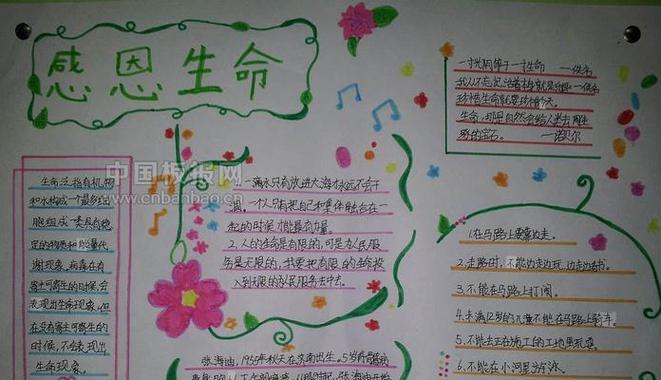 感恩生命
中国板报网
www.cnbanbao.cn
生命泛指有机物
和水构成一个最多细
胞组成一类具有稳
定的物质和能量代
谢现象。病毒在有
寄主可寄生的时候,会
表现出生命现象。但
在没有寄主可寄生的
时候,不会表现出
生命现象。
1.一滴水只有放进大海才永远不会干
涸。一个人只有把自己和集体融合在一
起的时候才能最有力量。
2.人的生命是有限的,可是为人民服
务是无限的,我要把有限的生命投
入到无限的为人民服务去中去。
张海迪,1955年秋天在济南出生。5岁
一寸光阴等于一寸生命 —佚名
珍惜生命就要珍惜今天。
生命,那是自然会给人类去雕
琢的宝石。 —诺贝尔
1.在马路上要靠边走。
2.走路时,不能边走边玩,边走边看书。
3.不能在马路上打闹。
4.未满12岁的儿童不能在马路上骑车。
5.不能去正在施工的工地里玩耍。
6.不能在小河里游泳。